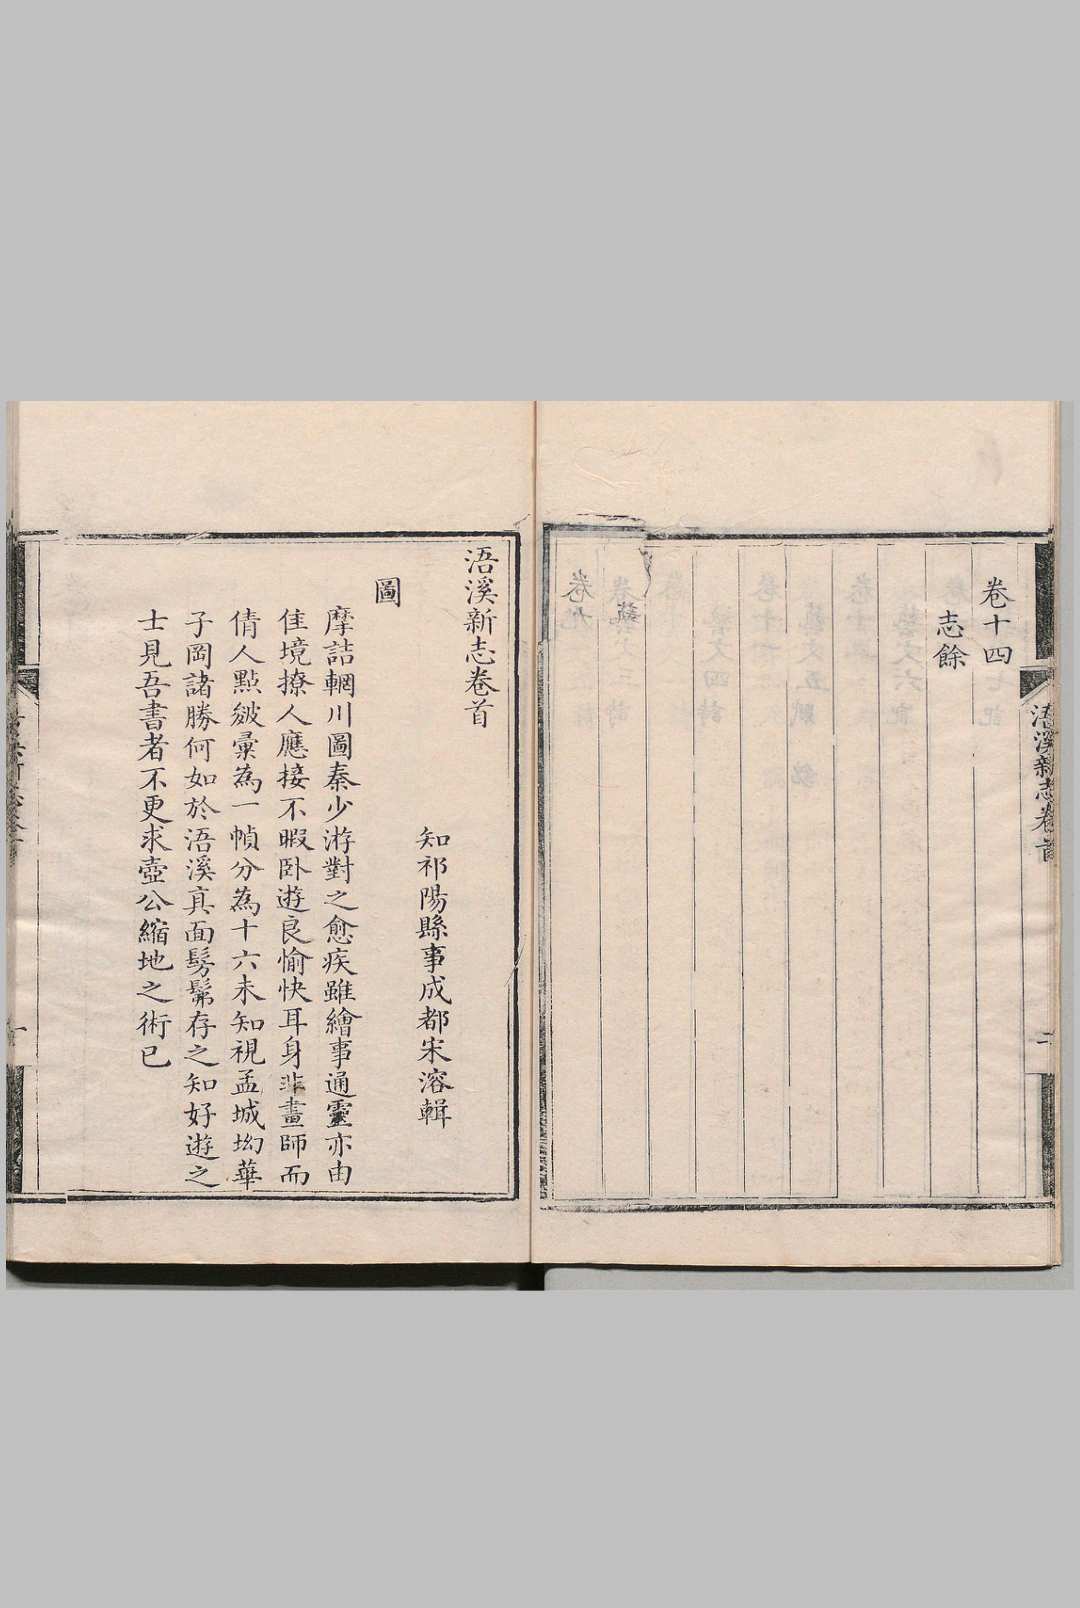 卷十四
志餘
浯溪新志卷首
二
浯溪新志卷首
知祁陽縣事成都宋溶輯
圖
摩詰輞川圖秦少游對之愈疾雖繪事通靈亦由
佳境撩人應接不暇卧遊良愉快耳身非畫師而
倩人點皴彙為一幀分為十六未知視孟城坳華
子岡諸勝何如於浯溪真面髣髴存之知好遊之
士見吾書者不更求壺公縮地之術已